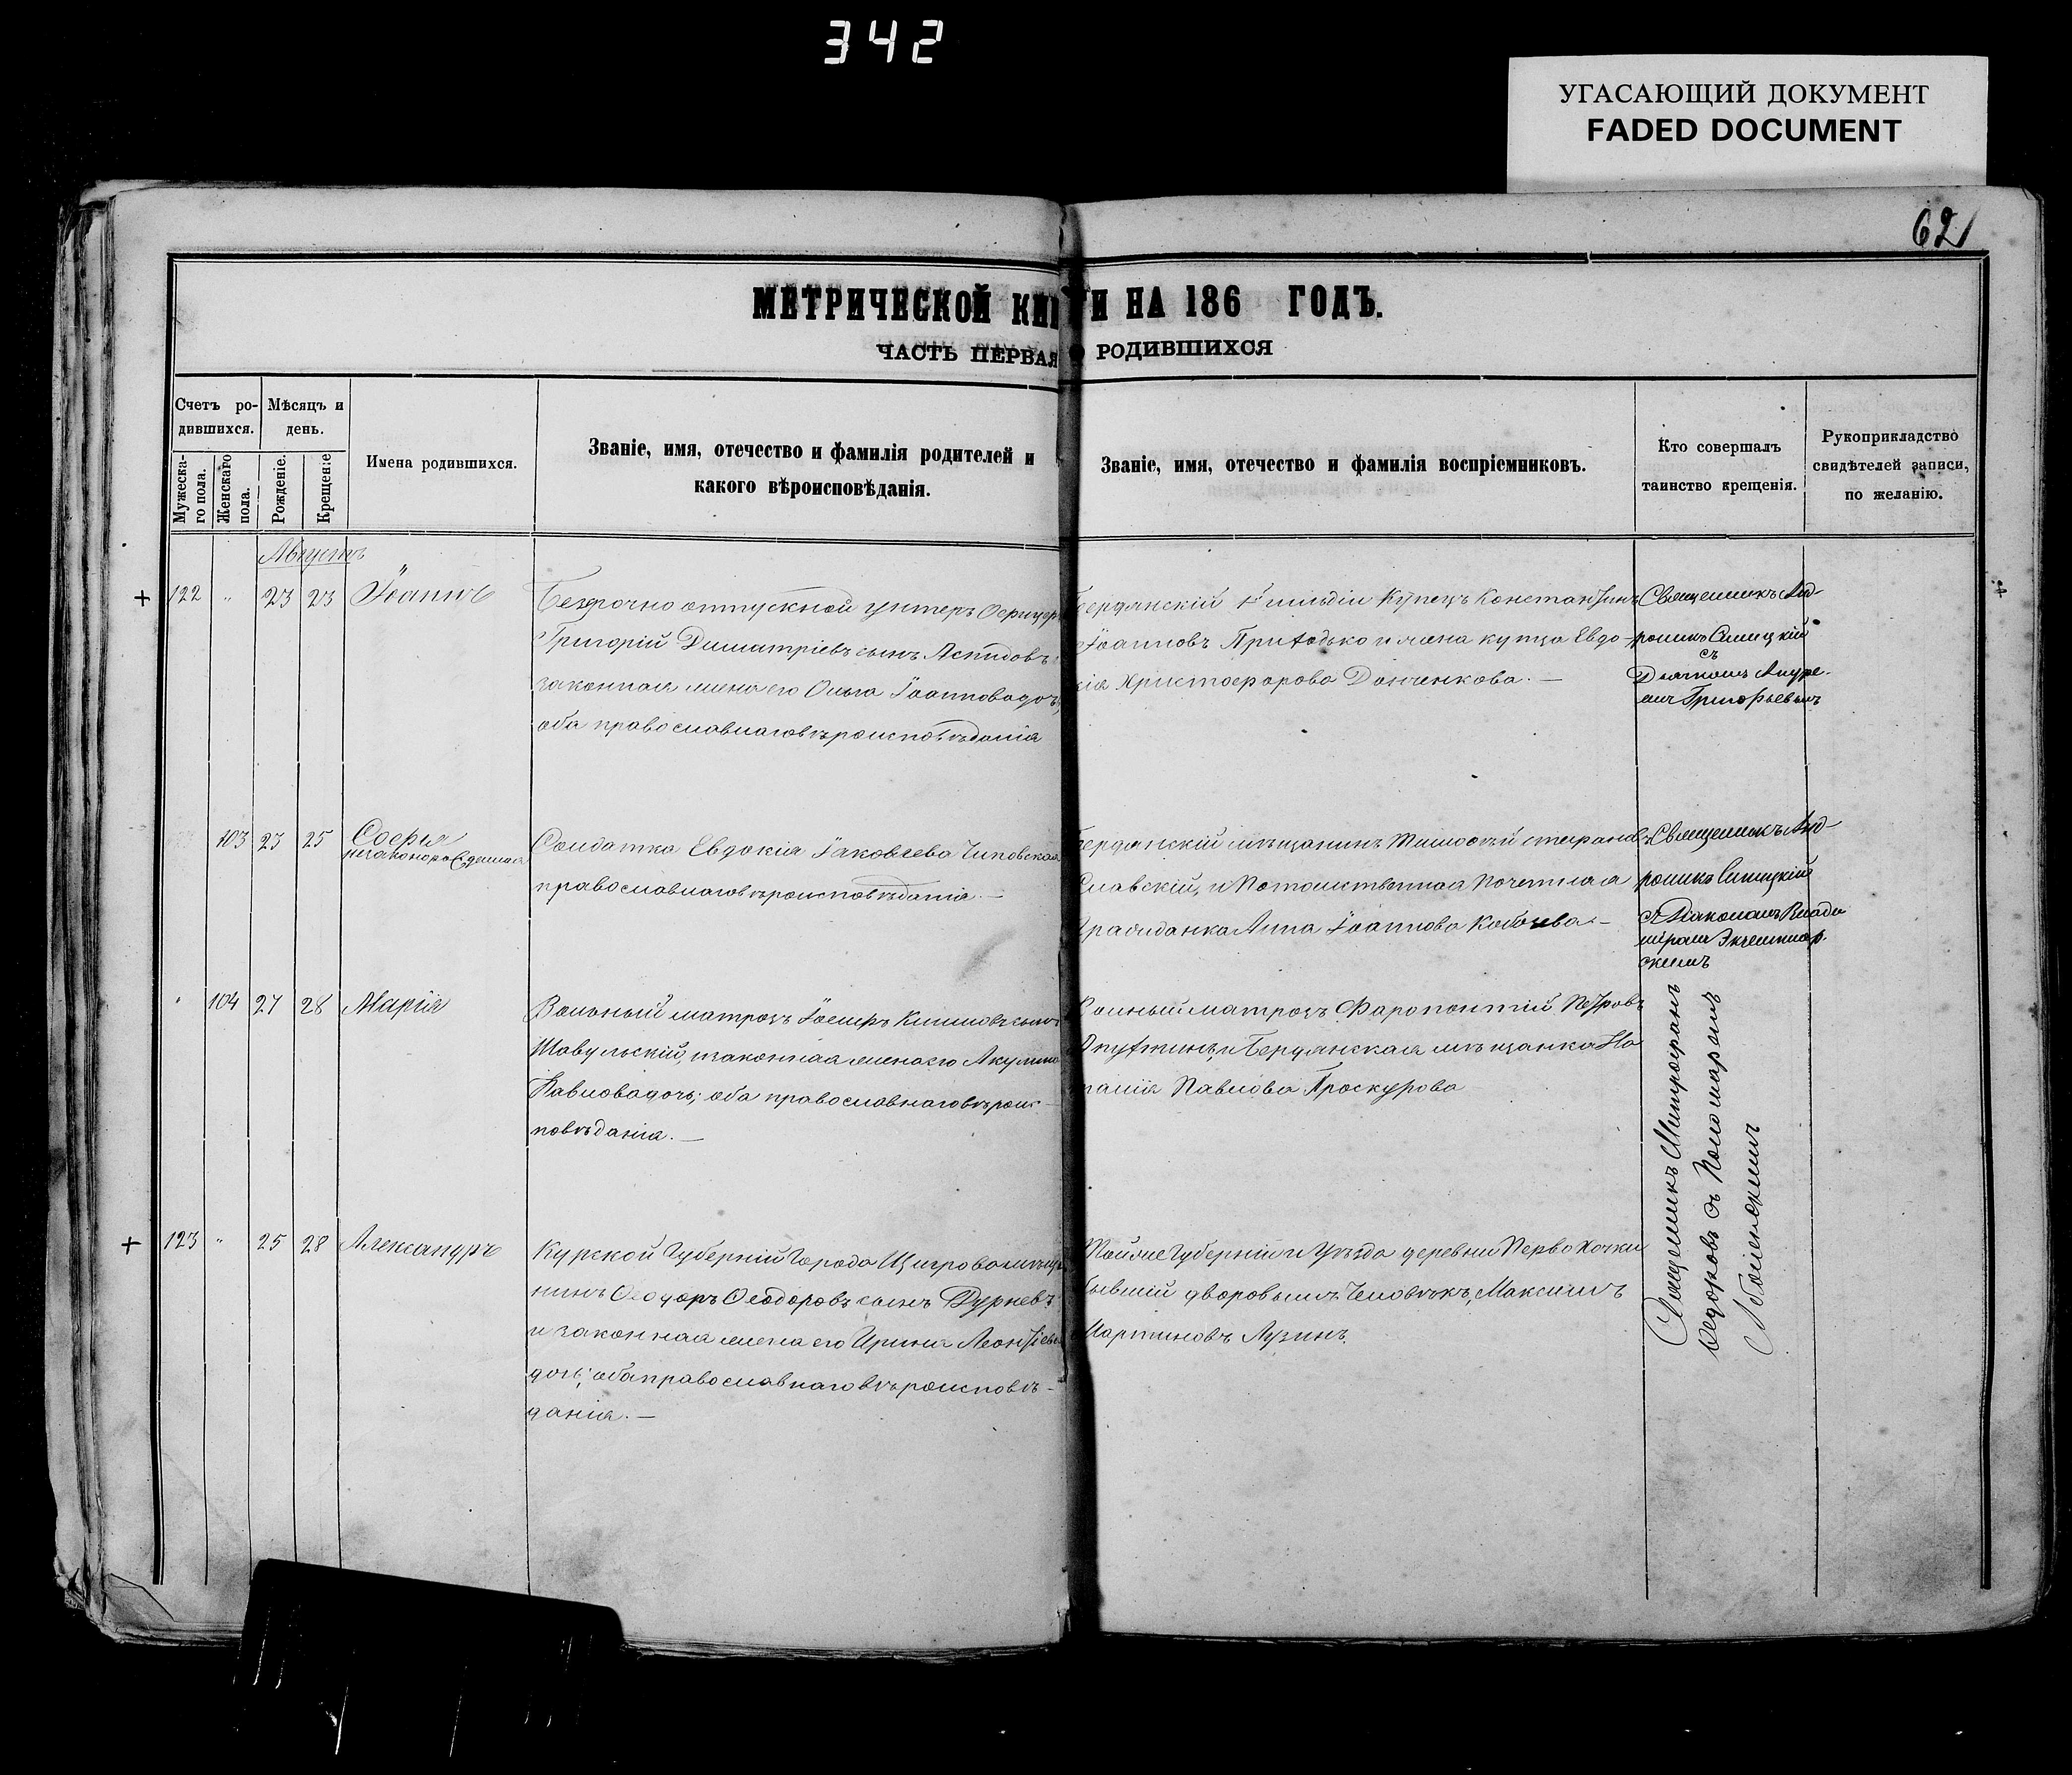 342
УГАСАЮЩИЙ ДОКУМЕНТ
FADED DOCUMENT
62
МЕТРИЧЕСКОЙ КНИГИ НА 186 ГОДЪ.
ЧАСТЬ ПЕРВАЯ О РОДИВШИХСЯ
Счетъ ро-
дившихся.
Мужеска-
го пола.
Женскаго
пола.
Мѣсяцъ и
день.
Рожденіе.
Крещеніе
Имена родившихся.
Званіе, имя, отечество и фамилія родителей и
какого вѣроисповѣданія.
Званіе, имя, отечество и фамилія воспріемниковъ.
Кто совершалъ
таинство крещенія.
Рукоприкладство
свидѣтелей записи,
по желанію.
Августъ
+ 122 " 23 23 Іоаннъ
Безсрочно отпускной унтеръ Офицеръ
Григорій Димитріевъ сынъ Аспидовъ
законная жена его Ольга Іоанновадочь,
оба православнаго вѣроисповѣданія
Бердянскій гильдіи Купецъ Константинъ
Іоанновъ Приходько и жена купца Евдо-
кія Христофорова Донченкова. —
Священникъ Анд-
роникъ Синицкій
съ
Дьячкомъ Андре-
емъ Григорьевымъ
103 23 25 Софья
незаконорожденная
Солдатка Евдокія Іаковлева
православнаго вѣроисповѣданія. —
Бердянскій мѣщанинъ Тимофѣй Стефановъ
Славскій, и Потомственная Почетная
Гражданка Анна Іоаннова —
Священникъ Анд-
роникъ Синицкій
съ Діакономъ Влади
миромъ
" 104 27 28 Марія
Вольный матрозъ Іосифъ сынъ
законная жена его Акулина
Павловадочь; оба православнаго вѣроис-
повѣданія. —
Вольный матрозъ Петровъ
и Бердянская мѣщанка На
талія Павлова Проскурова
Священникъ Митрофанъ
съ Пономаремъ
+ 123 " 25 28 Александръ
Курской Губерніи Города Щигрова мѣща
нинъ Ѳеодоръ Ѳеодоровъ сынъ Дурневъ
и законная жена его Ирина Леонтіева
дочь; оба православнаго вѣроисповѣ-
данія. —
Тойже Губерніи и Уѣзда деревни
бывшій дворовымъ Человѣкъ, Максимъ
Мартиновъ Лузинъ.